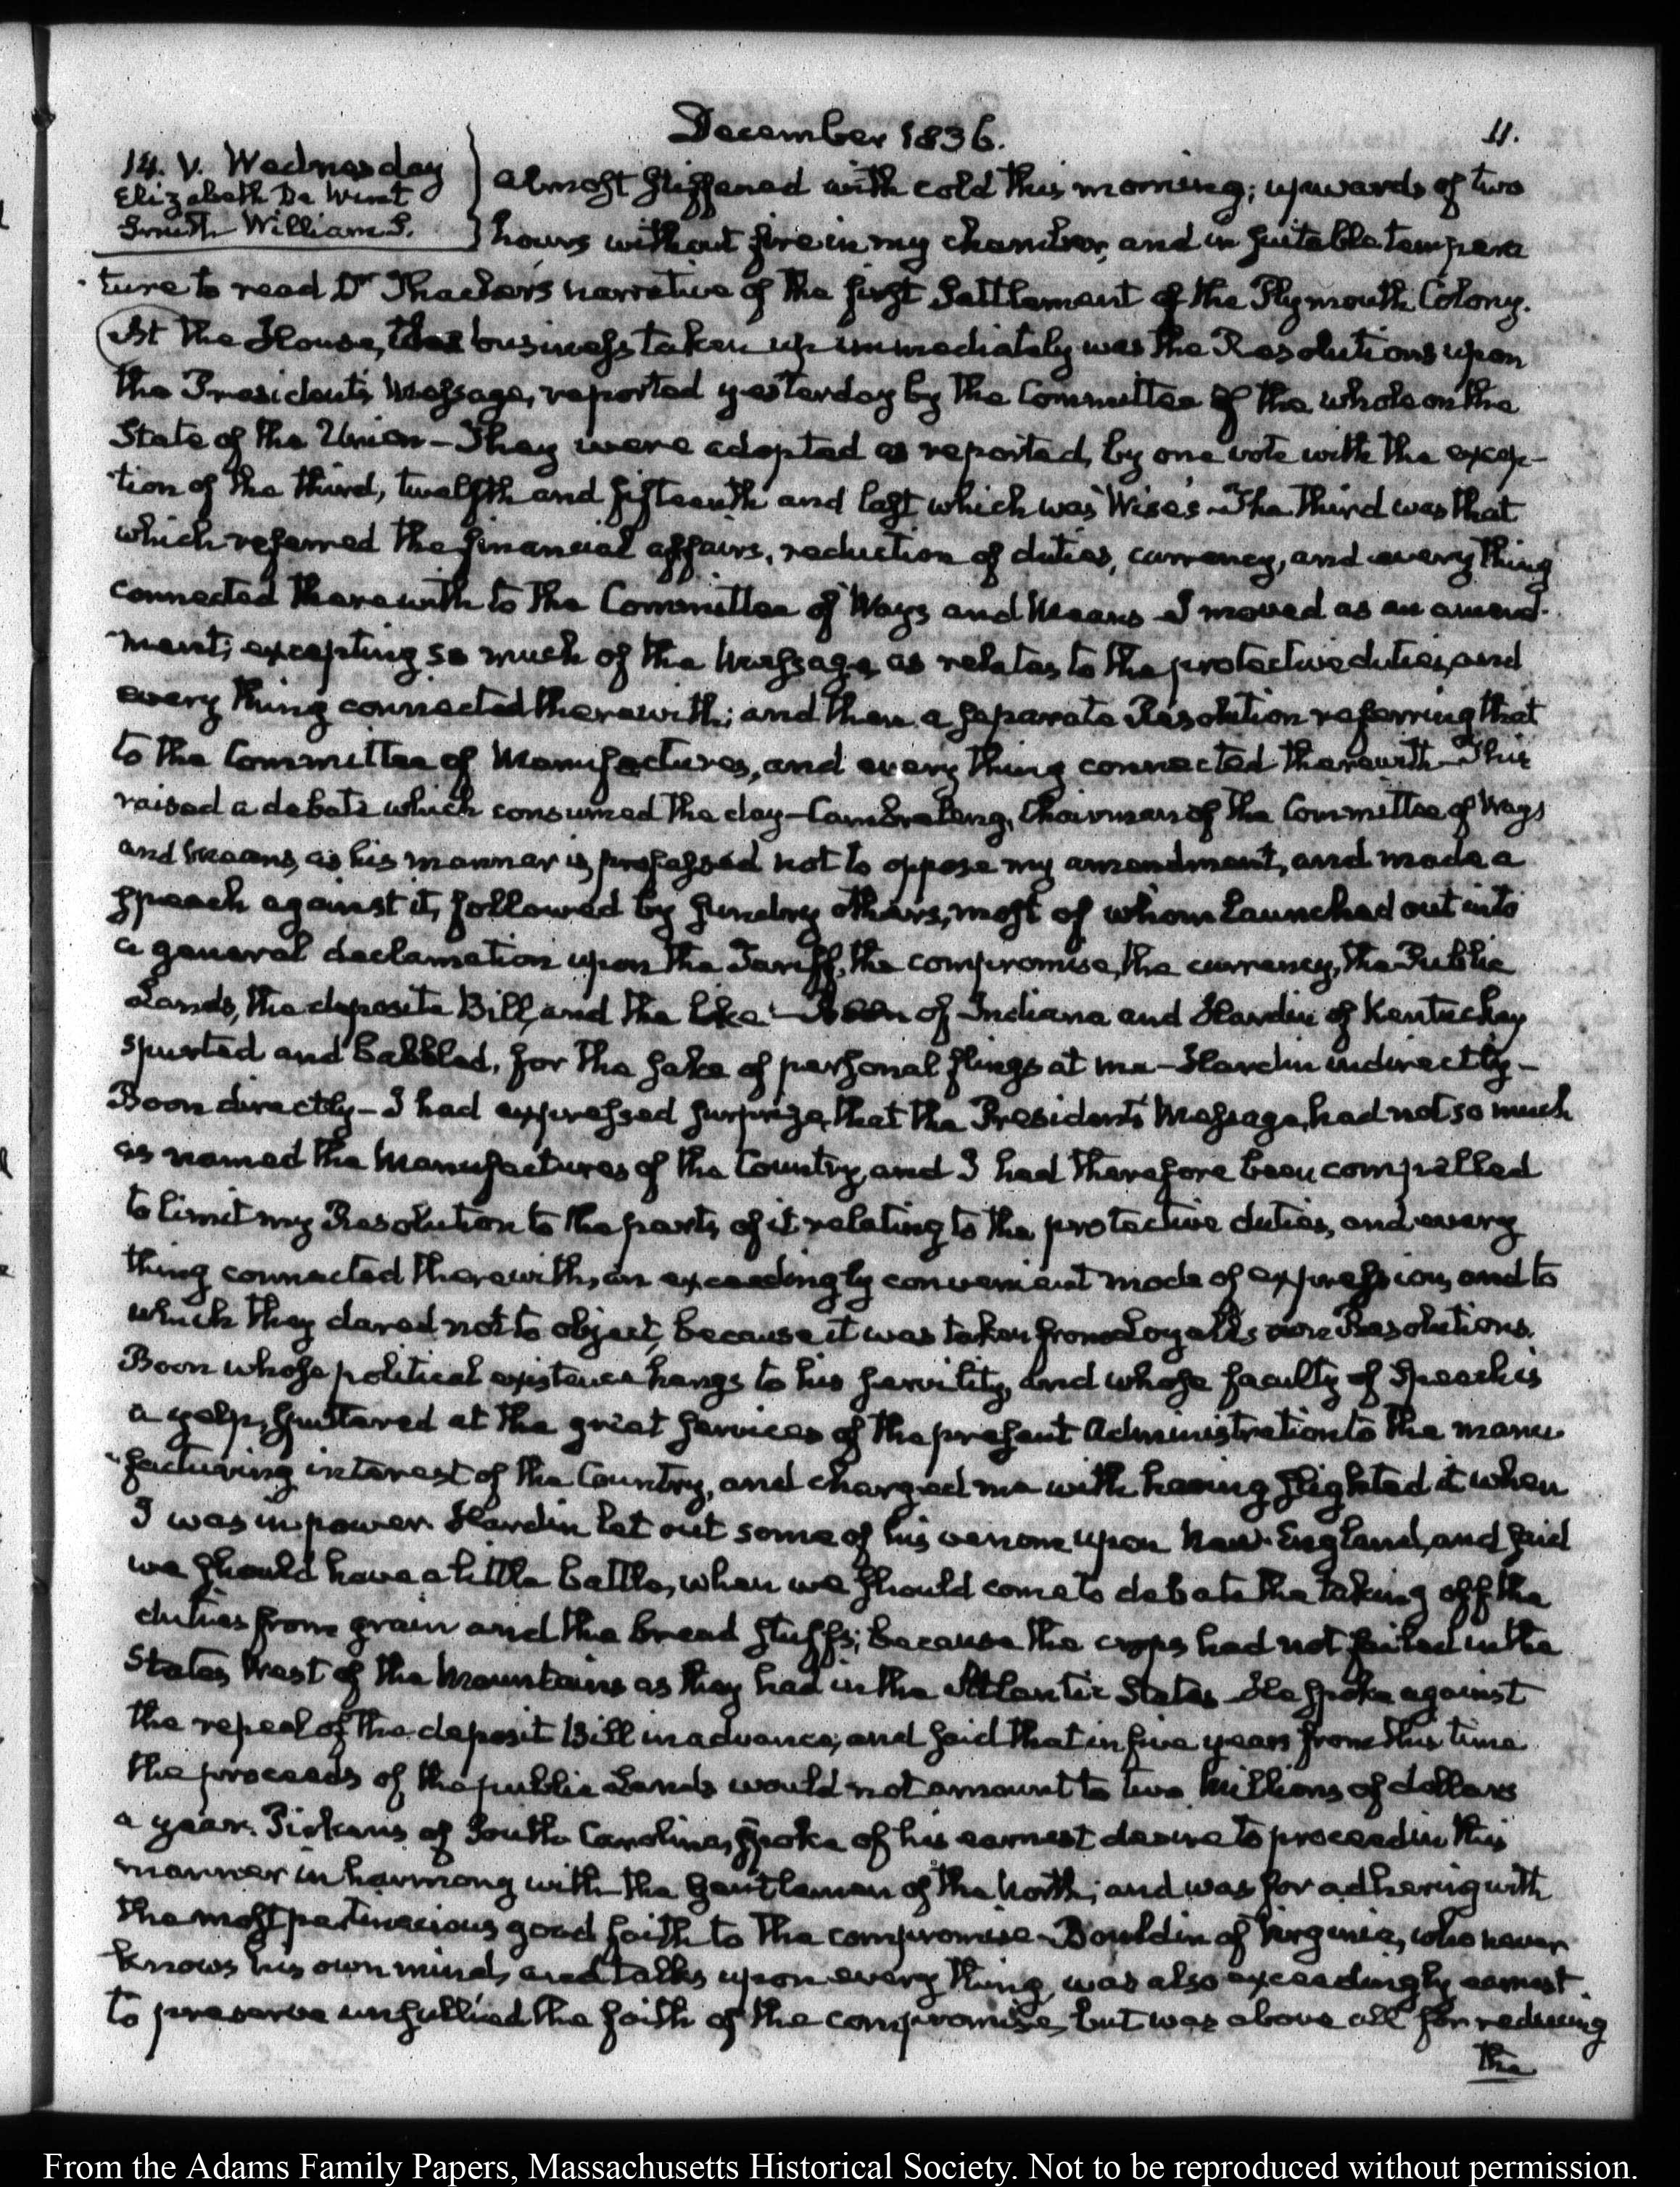 December 1836.
11.
14. V. Wednesday
Elizabeth De Wint
Smith William S.
almost stiffened with cold this morning; upwards of two
hours without fire in my chamber, and in suitable tempera
ture to read Dr. Thacher's narrative of the first Settlement of the Plymouth Colony.
At the House, the business taken up immediately was the Resolutions upon
the President's Message, reported yesterday by the Committee of the whole on the
State of the Union – They were adopted as reported, by one vote with the excep-
tion of the third, twelfth and fifteenth and last which was Wise's – The third was that
which referred the financial affairs, reduction of duties, currency, and every thing
connected therewith to the Committee of Ways and Means – I moved as an amend-
ment; excepting so much of the Message as relates to the protective duties, and
every thing connected therewith; and then a separate Resolution referring that
to the Committee of Manufactures, and every thing connected therewith – This
raised a debate which consumed the day – Cambreleng, Chairman of the Committee of Ways
and Means, as his manner is, professed not to oppose my amendment, and made a
speech against it, followed by sundry others, most of whom launched out into
a general declamation upon the Tariff, the compromise, the currency, the Public
Lands, the deposite Bill, and the like – Boon of Indiana and Hardin of Kentuckey
spurted and babbled, for the sake of personal flings at me – Hardin indirectly –
Boon directly – I had expressed surprize, that the President's Message, had not so much
as named the Manufactures of the Country, and I had therefore been compelled
to limit my Resolution to the parts of it relating to the protective duties, and every
thing connected therewith, an exceedingly convenient mode of expression, and to
which they dared not to object, because it was taken from Loyall's own Resolutions.
Boon whose political existence hangs to his servility, and whose faculty of Speech is
a yelp, sputtered at the great services of the present Administration to the manu-
facturing interest of the Country, and charged me with having slighted it when
I was in power. Hardin let out some of his venom upon New-England, and said
we should have a little battle, when we should come to debate the taking off the
duties from grain and the bread stuffs; because the crops had not failed in the
States West of the Mountains as they had in the Atlantic States – He spoke against
the repeal of the deposit Bill in advance; and said that in five years from this time
the proceeds of the public Lands would not amount to two Millions of dollars
a year. Pickens of South-Carolina, spoke of his earnest desire to proceed in this
manner in harmony with the Gentlemen of the North; and was for adhering with
the most pertinacious good faith to the compromise – Bouldin of Virginia, who never
knows his own mind, and talks upon every thing, was also exceedingly earnest
to preserve unsullied the faith of the compromise, but was above all for reducing
the
From the Adams Family Papers, Massachusetts Historical Society. Not to be reproduced without permission.